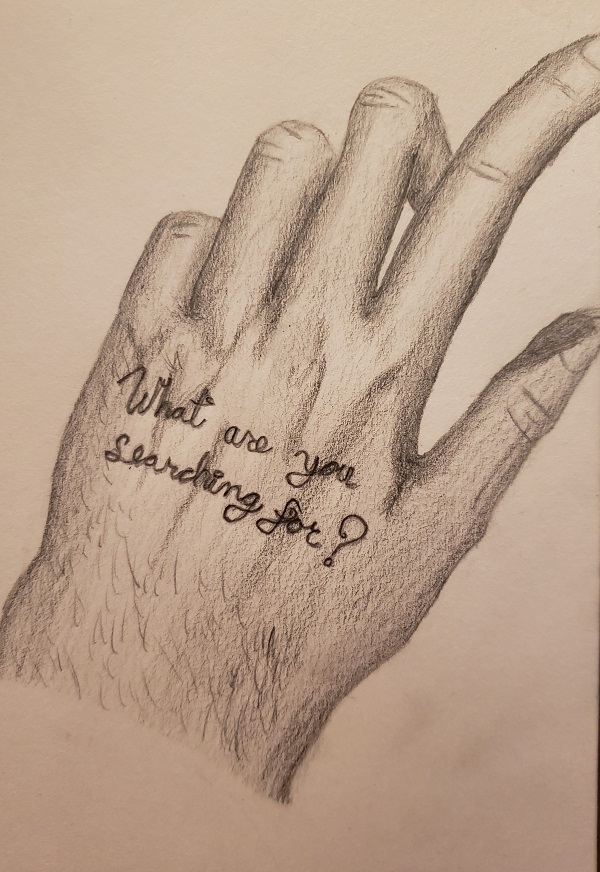 What are you
searching for?